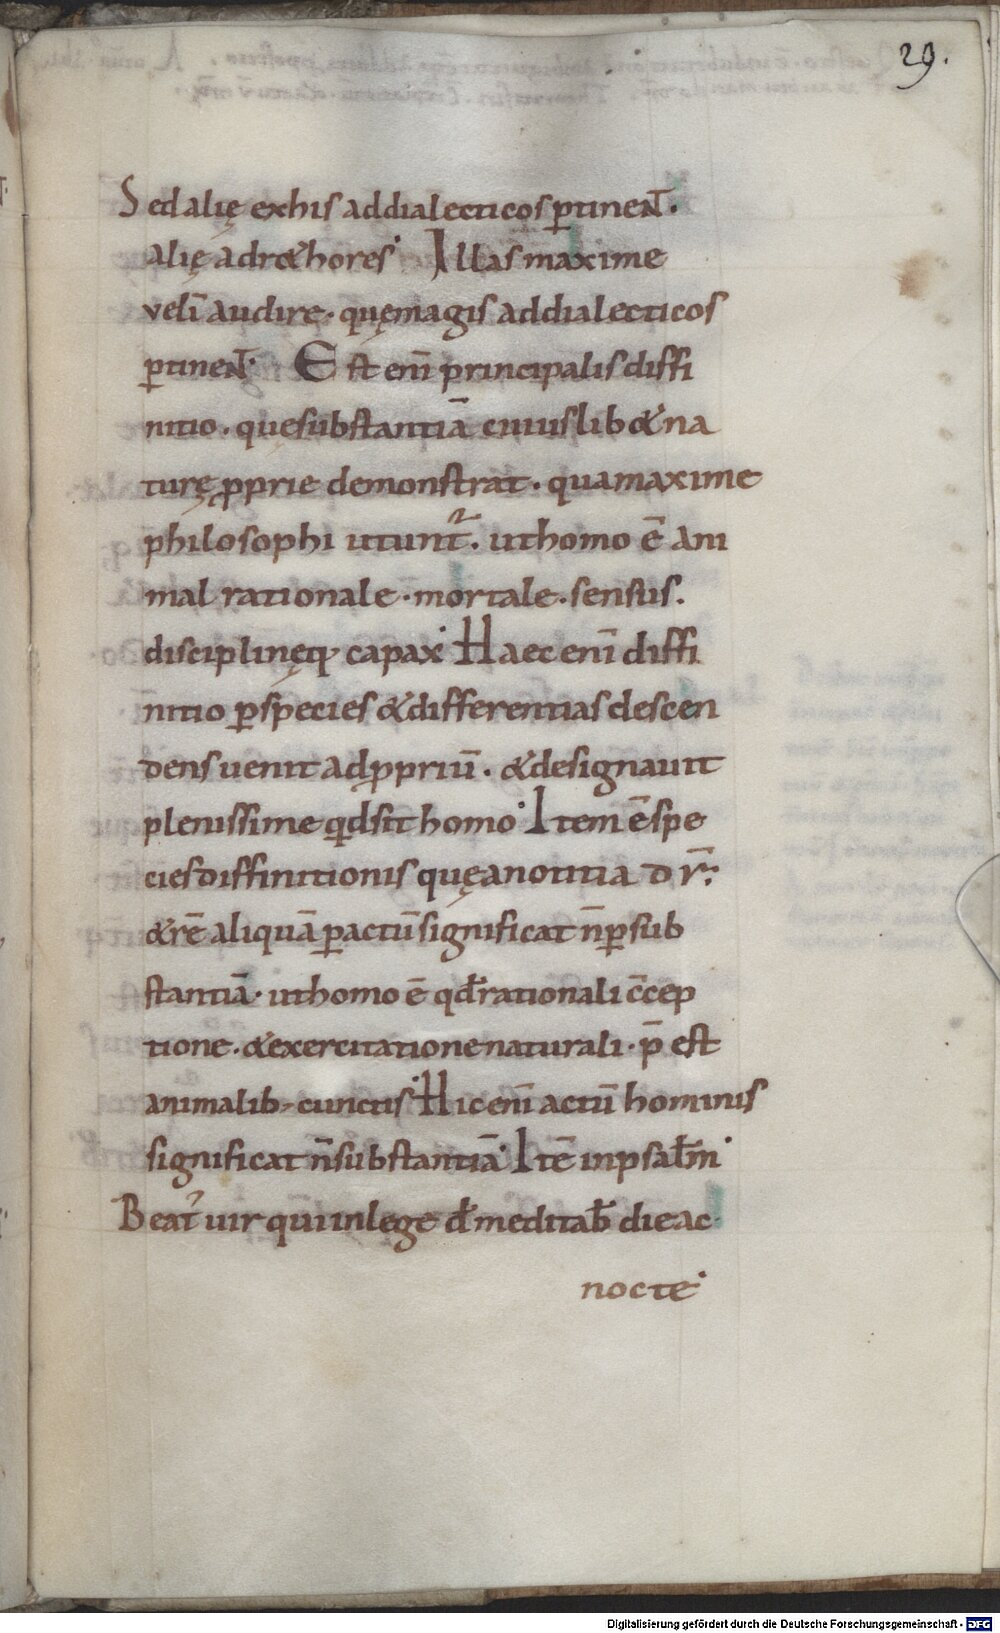 29.
Sed alię exhis addialecticos p̄tinent.
alię adr&hores· Illas maxime
veli̅ audire· quęmagis addialecticos
p̄tinent· Est eni̅ principalis diffi
nitio· quęsubstantia̅ cuiuslib& na
turę p̱prie demonstrat· quamaxime
philosophi utunt̃. uthomo ē ani
mal rationale· mortale· sensus.
disciplinęq· capax· Haec eni̅ diffi
nitio p̱species &differentias descen
dens uenit adp̱priu̅· &designauit
plenissime qdsit homo· Item ē spe
cies diffinitionis quęanotitia dr̅:
&rē aliqua̅ p̱actu̅ significat n̅p̱sub
stantia̅· uthomo ē qd̅rationali c̅cep
tione· &exercitatione naturali· p̄est
animalib· cunctis· Hic eni̅ actu̅ hominis
significat n̅substantia̅· Ite̅ inpsal̅m·
Beat᾽ uir qui inlege d̅meditab̅ die ac
nocte·
Digitalisierung gefördert durch die Deutsche Forschungsgemeinschaft - DFG